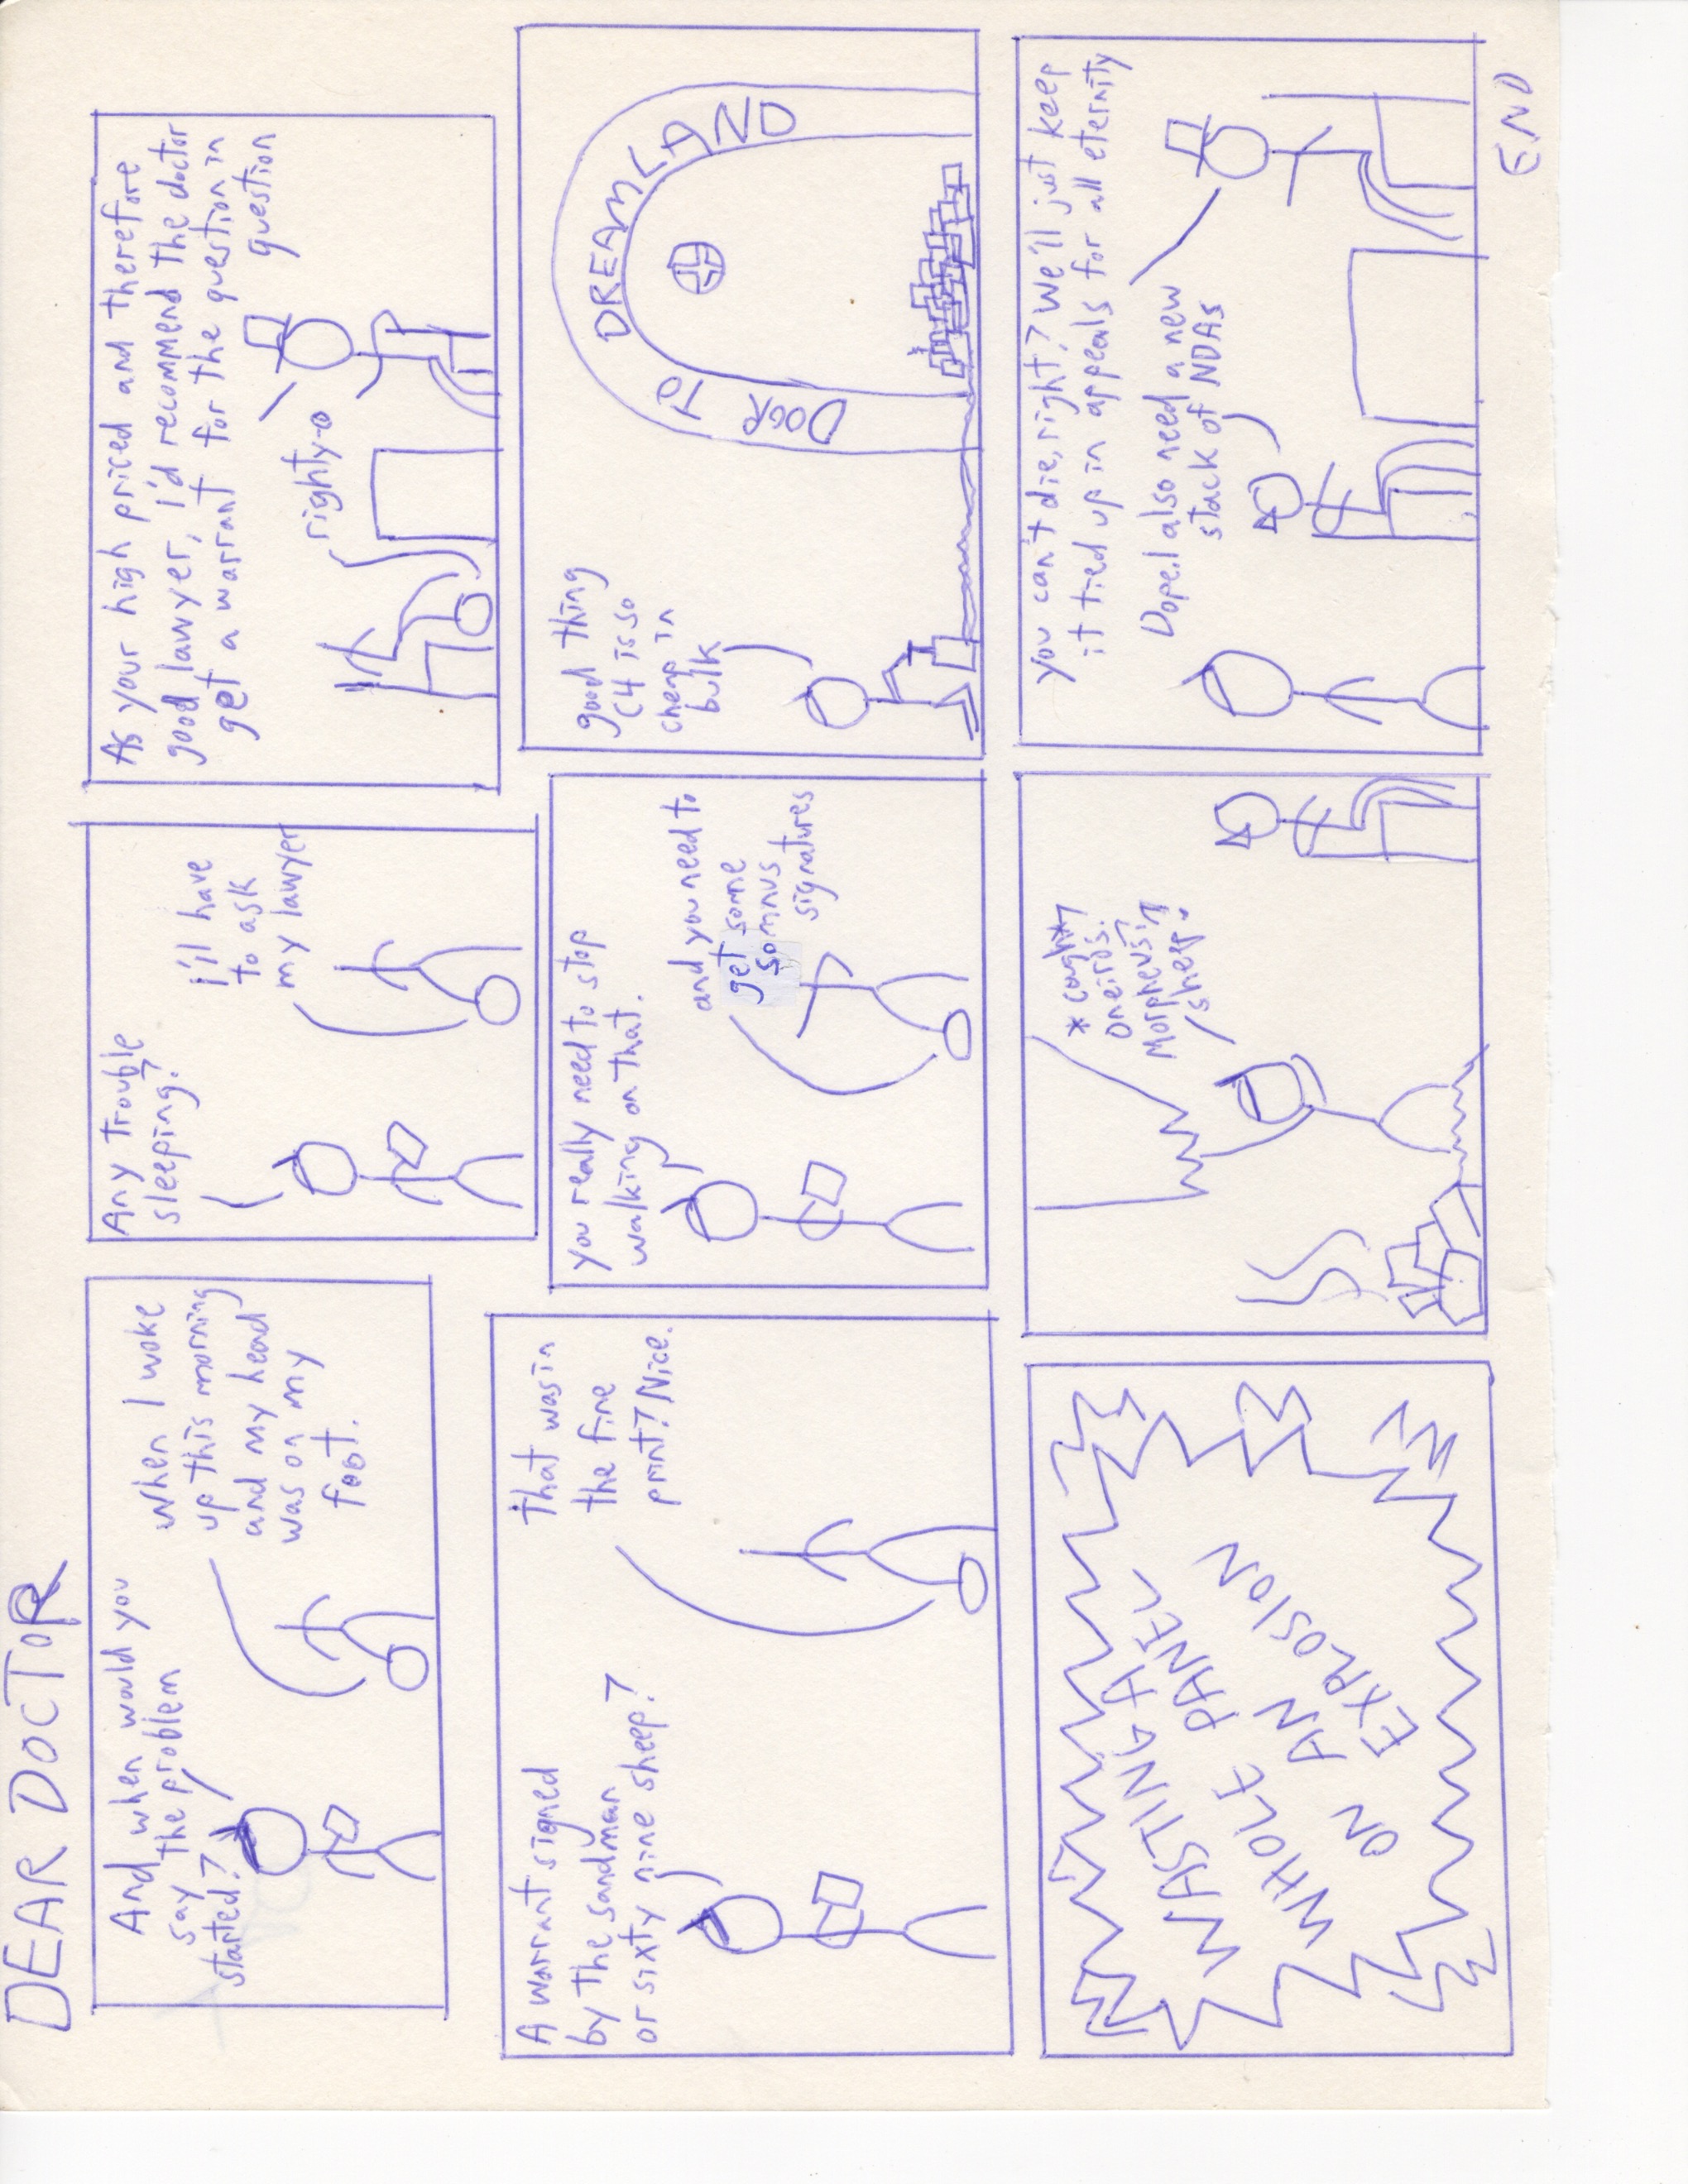 DEAR DOCTOR
And when would you
say the problem
started?
when I woke
up this morning
and my head
was on my
foot.
Any trouble
sleeping?
i'll have
to ask
my lawyer
As your high priced and therefore
good lawyer, i'd recommend the doctor
get a warrant for the question in
question
righty-o
A warrant signed
by the sandman
or sixty nine sheep?
that was in
the fine
print? Nice.
you really need to stop
walking on that.
and you need to
get some
somnus
signatures
good thing
C4 is so
cheap in
bulk
DOOR TO DREAMLAND
WASTING A
WHOLE PANEL
ON AN
EXPLOSION
*cough*
Oneiros?
Morpheus?
sheep?
you can't die, right? We'll just keep
it tied up in appeals for all eternity
Dope. I also need a new
stack of NDAs
END